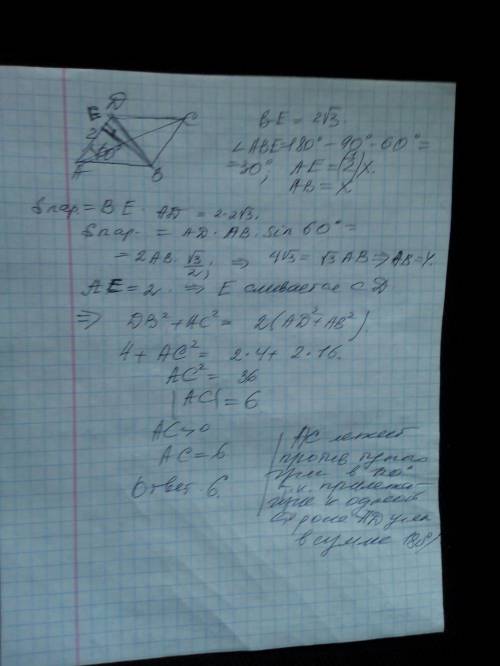 D
E
C
2
60°
A
B
BE = 2√3.
∠ABE=180°-90°-60°=
=30°, AE=(½)x.
AB = x.
Sпар.= BE · AD = 2·2√3.
Sпар. = AD · AB · sin 60°=
= 2AB · √3/2, ⇒ 4√3 = √3 AB ⇒ AB=4.
AE=2 ⇒ E сливается с D
⇒ DB²+AC²= 2(AD²+AB²).
4 + AC² = 2·4 + 2·16.
AC² = 36
|AC| = 6
AC>0
AC=6
Ответ 6.
AC лежит
против
угла в 120°
т.к. прилежа-
щие к одной
стороне AD углы
в сумме 180°)